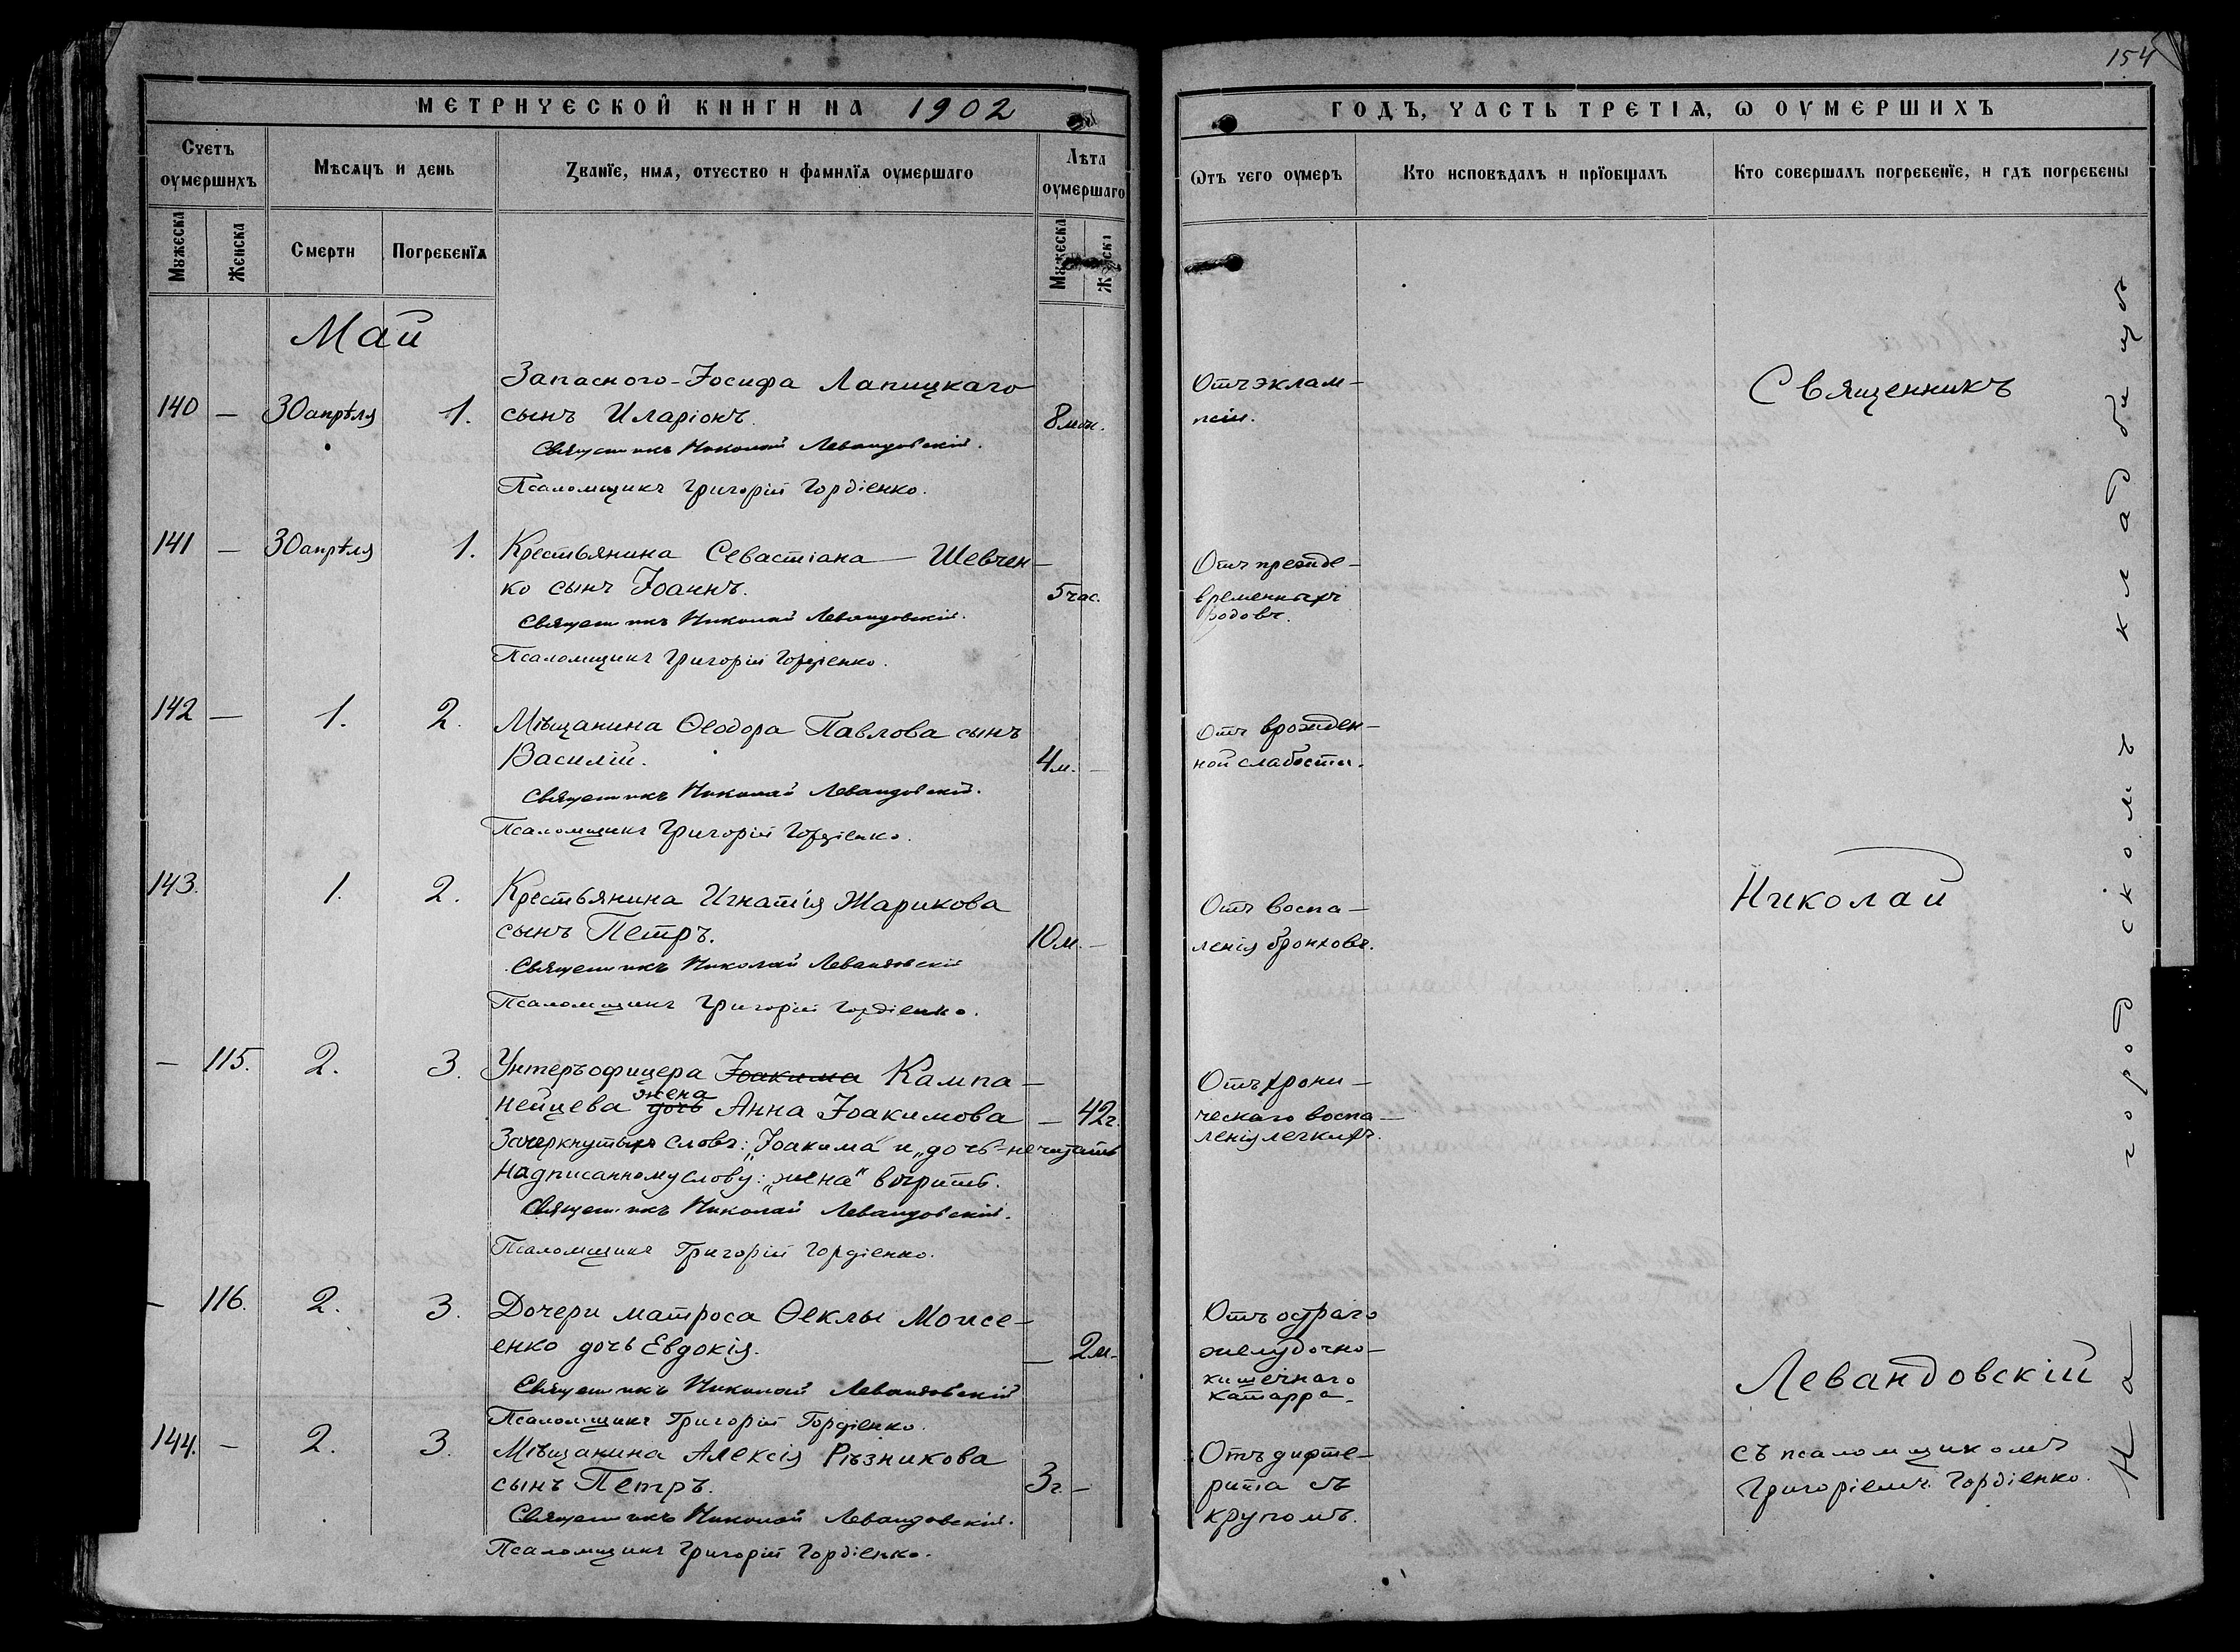 154
МЕТРИЧЕСКОЙ КНИГИ НА 1902
ГОДЪ, ЧАСТЬ ТРЕТІѦ, Ѡ ОУМЕРШИХЪ
Счетъ оумершихъ
Мѣсѧцъ и день
Званїе, имѧ, отчество и фамилїѧ оумершаго
Лѣта оумершаго
Ѿтъ чего оумеръ
Кто исповѣдалъ и прїобщалъ
Кто совершалъ погребенїе, и гдѣ погребены
Мужеска
Женска
Смерти
Погребенїѧ
Мужеска
Женска
Май
140 — 30 апрѣля 1.
Запасного Іосифа Лапицкаго
сынъ Иларіонъ.
8 мѣс.
Священникъ Николай Левандовскій.
Псаломщикъ Григорій Гордіенко.
Отъ эклам-
псіи.
141 — 30 апрѣля 1.
Крестьянина Севастіана Шевчен-
ко сынъ Іоаннъ.
5 час.
Священникъ Николай Левандовскій.
Псаломщикъ Григорій Гордіенко.
Отъ прежде-
временныхъ
родовъ.
142 — 1. 2.
Мѣщанина Ѳеодора Павлова сынъ
Василій.
4 м. —
Священникъ Николай Левандовскій.
Псаломщикъ Григорій Гордіенко.
Отъ врожден-
ной слабости.
143. 1. 2.
Крестьянина Игнатія Жарикова
сынъ Петръ.
10 м. —
Священникъ Николай Левандовскій
Псаломщикъ Григорій Гордіенко.
Отъ воспа-
ленія бронховъ.
— 115. 2. 3.
Унтеръофицера Іоакима Кампа-
жена
нейцева дочь Анна Іоакимова
— 42 г.
Зачеркнутыхъ словъ: „Іоакима" и „дочь"-не читать
надписанному слову: „жена" вѣрить.
Священникъ Николай Левандовскій.
Псаломщикъ Григорій Гордіенко.
Отъ хрони-
ческаго воспа-
ленія легкихъ.
— 116. 2. 3.
Дочери матроса Ѳеклы Моисе-
енко дочь Евдокія.
— 2 м.
Священникъ Николай Левандовскій
Псаломщикъ Григорій Гордіенко.
Отъ остраго
желудочно-
кишечнаго
катарра.
144. — 2. 3.
Мѣщанина Алексія Рѣзникова
сынъ Петръ.
3 г. —
Священникъ Николай Левандовскій.
Псаломщикъ Григорій Гордіенко.
Отъ дифте-
рита съ
крупомъ.
Священникъ
Николай
Левандовскій
съ псаломщикомъ
Григоріемъ Гордіенко.
На городскомъ кладбищѣ